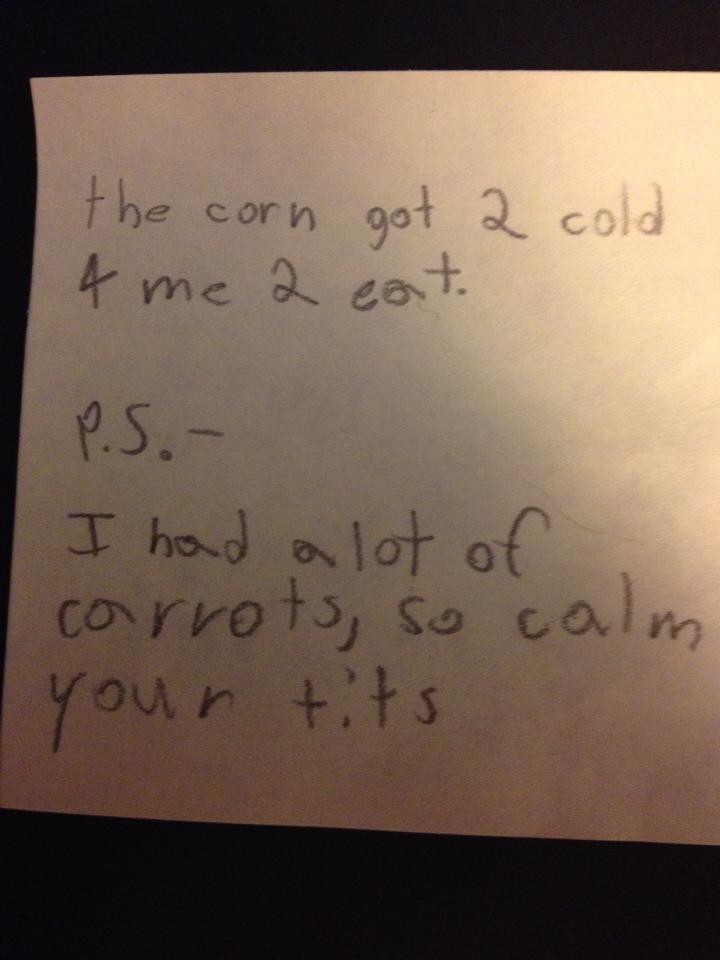 the corn got 2 cold
4 me 2 eat.
P.S.-
I had a lot of
carrots, so calm
your tits